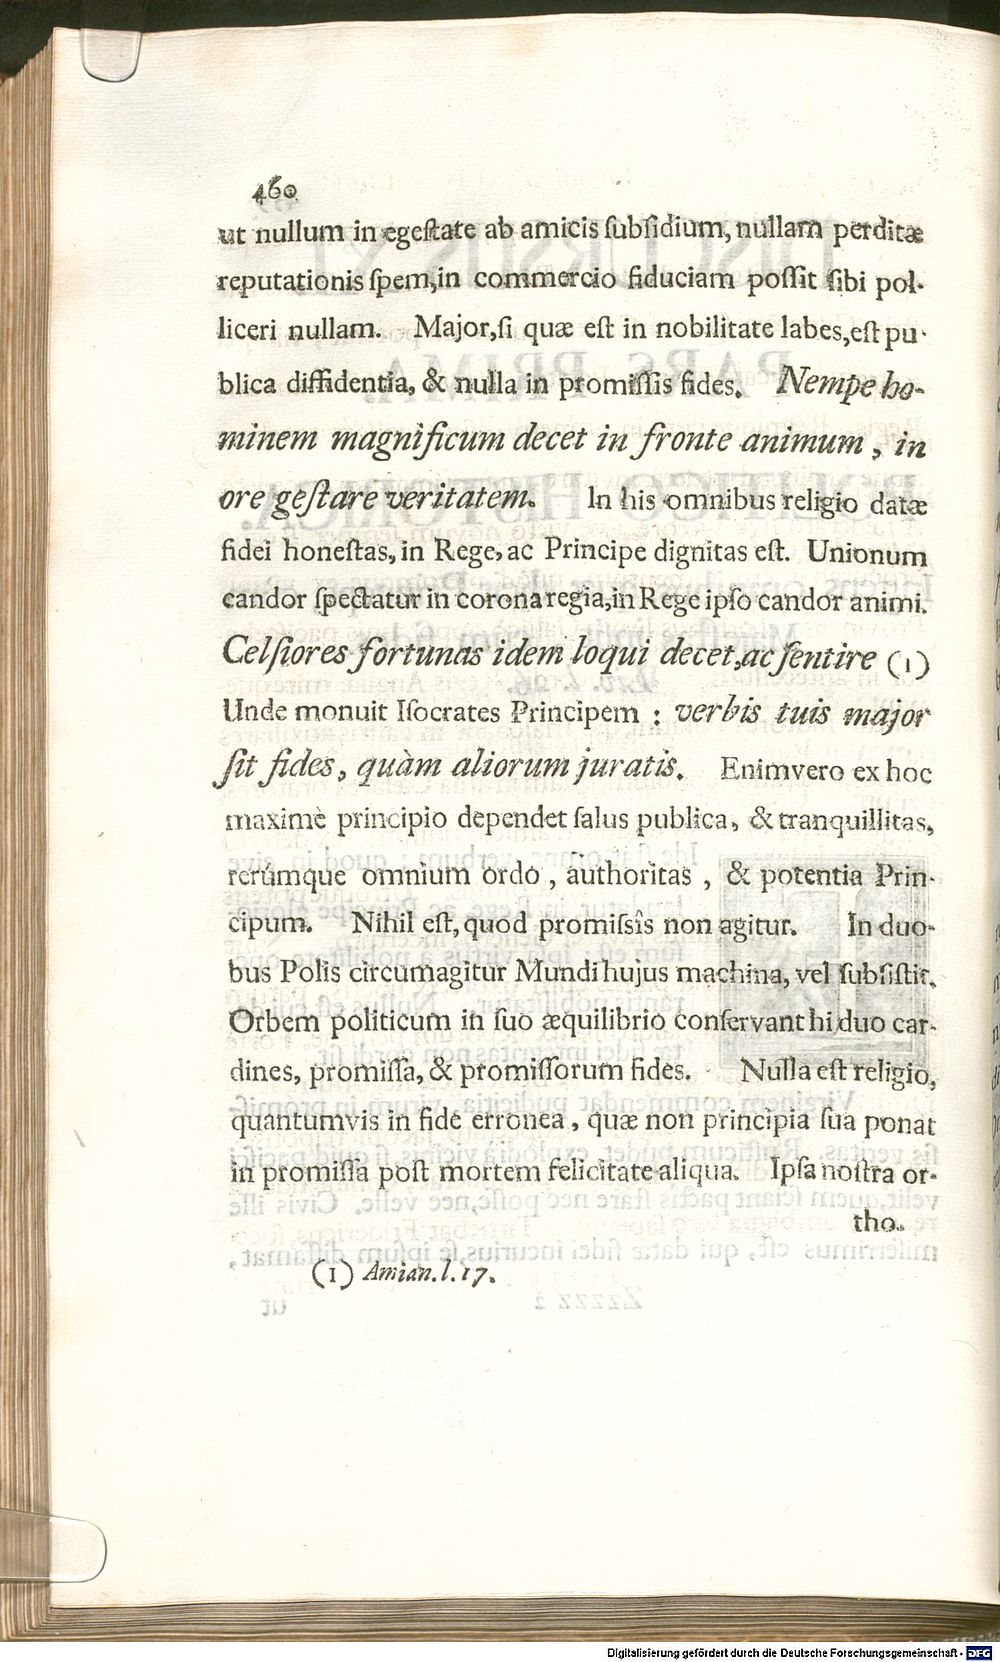 460
ut nullum in egeſtate ab amicis ſubſidium, nullam perditæ
reputationis ſpem,in commercio fiduciam poſſit ſibi pol-
liceri nullam. Major,ſi quæ eſt in nobilitate labes,eſt pu-
blica diffidentia, & nulla in promiſſis fides. Nempe ho-
minem magnificum decet in fronte animum, in
ore geſtare veritatem. In his omnibus religio datæ
fidei honeſtas, in Rege, ac Principe dignitas eſt. Unionum
candor ſpectatur in corona regia,in Rege ipſo candor animi.
Celſiores fortunas idem loqui decet,ac ſentire (1)
Unde monuit Iſocrates Principem : verbis tuis major
ſit fides, quàm aliorum juratis. Enimvero ex hoc
maximè principio dependet ſalus publica, & tranquillitas,
rerúmque omnium ordo, authoritas, & potentia Prin-
cipum. Nihil eſt, quod promiſsîs non agitur. In duo-
bus Polis circumagitur Mundi hujus machina, vel ſubſiſtit.
Orbem politicum in ſuo æquilibrio conſervant hi duo car-
dines, promiſſa, & promiſſorum fides. Nulla eſt religio,
quantumvis in fide erronea, quæ non principia ſua ponat
in promiſſa poſt mortem felicitate aliqua. Ipſa noſtra or-
tho-
(1) Amian. l. 17.
Digitalisierung gefördert durch die Deutsche Forschungsgemeinschaft - DFG